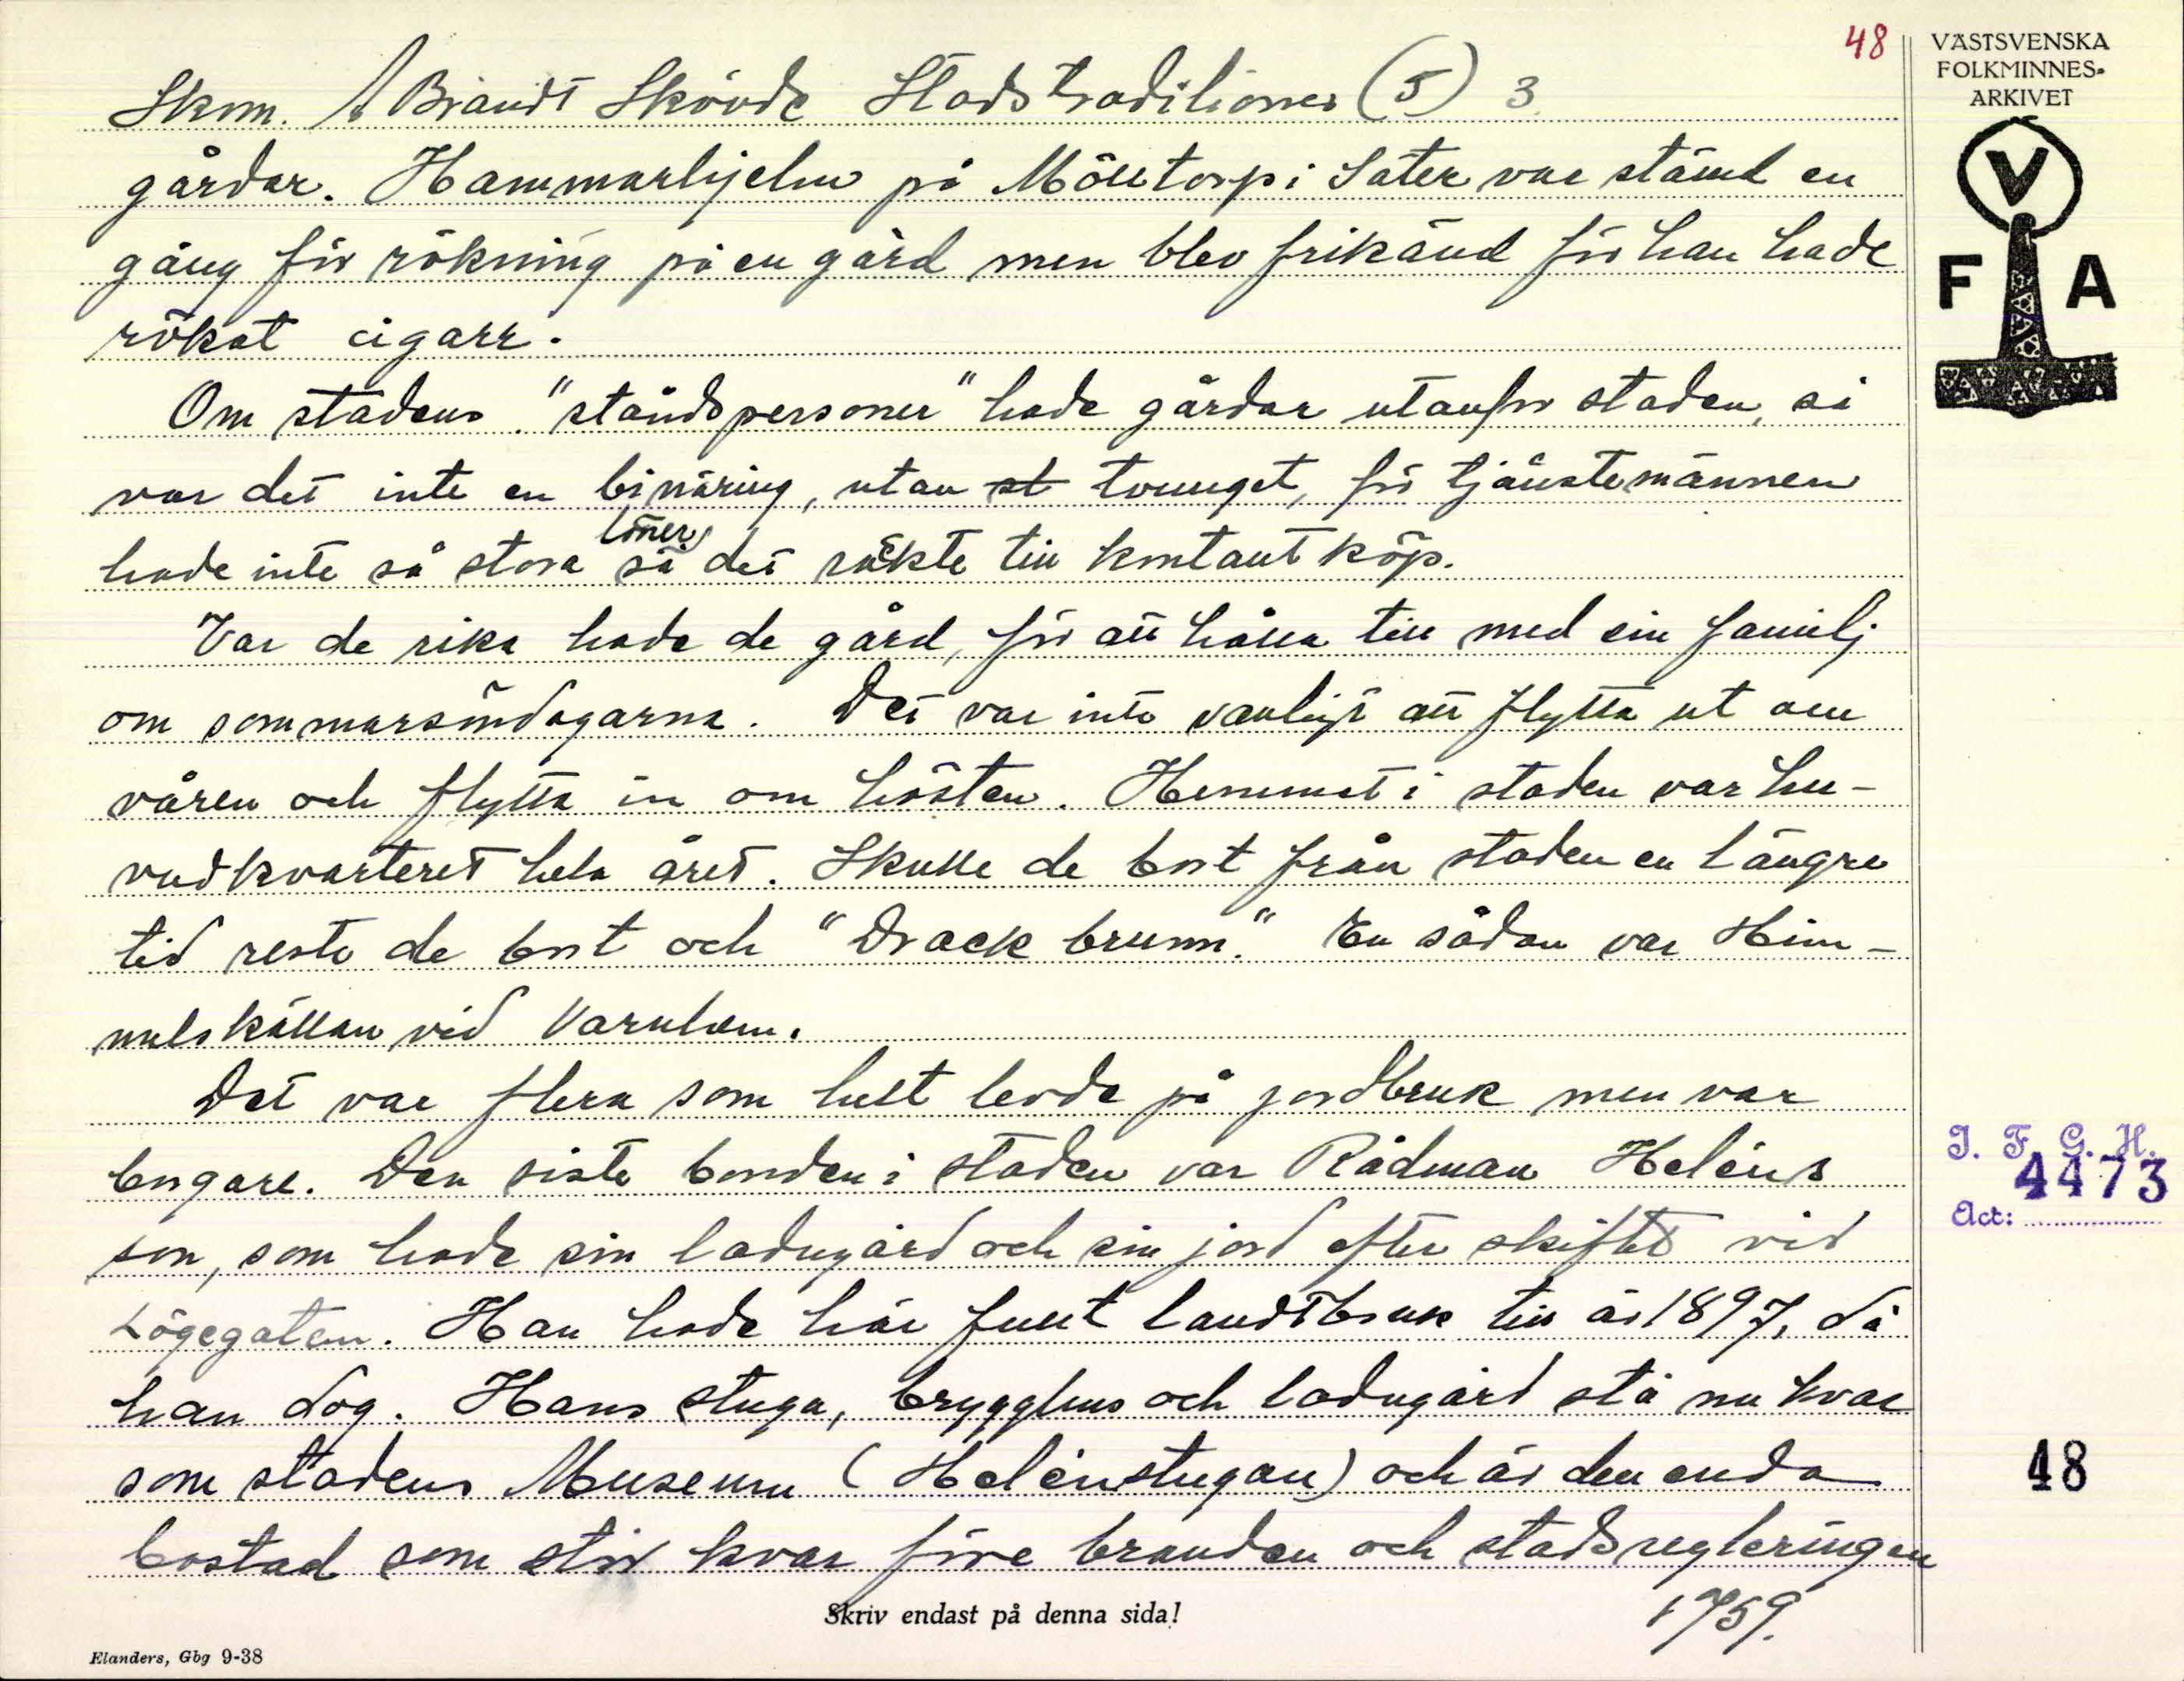 48
VÄSTSVENSKA
FOLKMINNES-
ARKIVET
V
F A
Skom. A Brandt Skövde Stadstraditioner (5) 3.
gårdar. Hammarhjelm på Mölltorp i Säter var stämd en
gång för rökning på en gård men blev frikänd för han hade
rökat cigarr.
Om stadens "ståndspersoner" hade gårdar utanför staden, så
var det inte en binäring, utan st tvunget, för tjänstemännen
hade inte så stora löner så det räckte till kontant köp.
Var de rika hade de gård, för att hålla till med sin familj
om sommarsöndagarna. Det var inte vanligt att flytta ut om
våren och flytta in om hösten. Hemmet i staden var hu-
vudkvarteret hela året. Skulle de bort från staden en längre
tid reste de bort och "Drack brunn." En sådan var Him-
melskällan vid Varnhem.
Det var flera som helt levde på jordbruk men var
borgare. Den siste bonden i staden var Rådman Heléns
son, som hade sin ladugård och sin jord efter skiftet vid
Lögegatan. Han hade här fullt landtbruk till år 1897, då
han dog. Hans stuga, brygghus och ladugård stå nu kvar
som stadens Museum (Helénstugan) och är den enda
bostad som står kvar före branden och stadsregleringen
1759.
I. F. G. H.
4473
Act:
48
Skriv endast på denna sida!
Elanders, Gbg 9-38